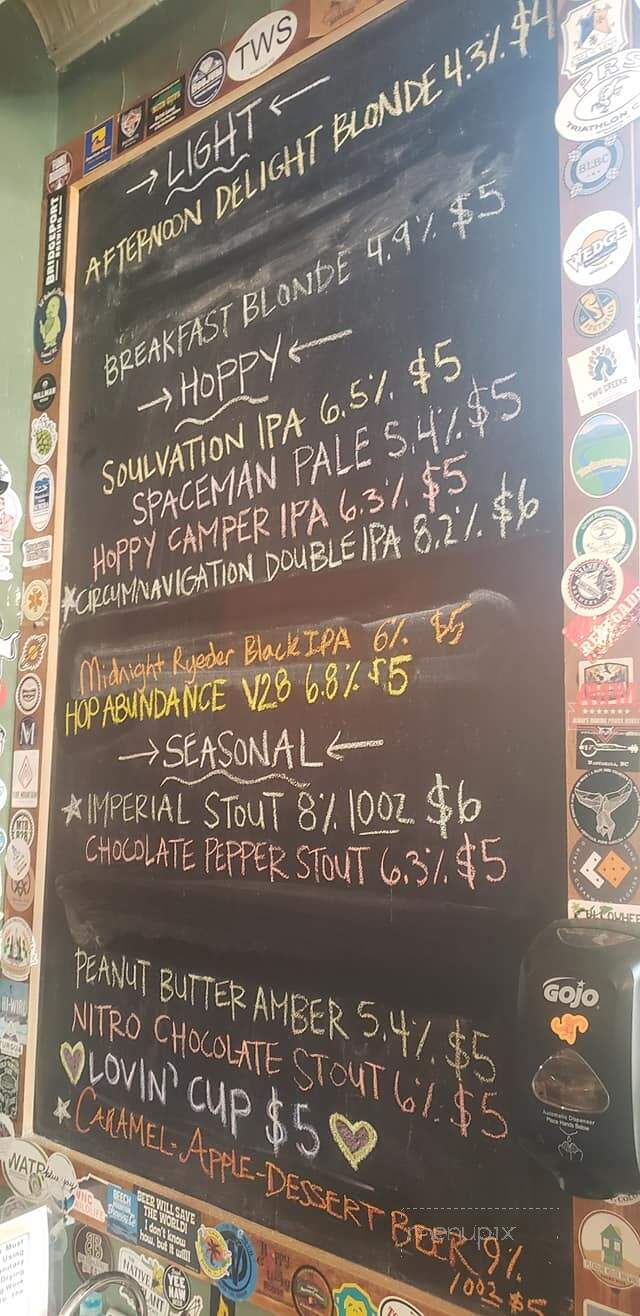 TWS
→ LIGHT ←
AFTERNOON DELIGHT BLONDE 4.3% $4
BREAKFAST BLONDE 4.9% $5
→ HOPPY ←
SOULVATION IPA 6.5% $5
SPACEMAN PALE 5.4% $5
HOPPY CAMPER IPA 6.3% $5
CIRCUMNAVIGATION DOUBLE IPA 8.2% $6
Midnight Ryeder Black IPA 6% $5
HOP ABUNDANCE V28 6.8% $5
→ SEASONAL ←
IMPERIAL STOUT 8% 10OZ $6
CHOCOLATE PEPPER STOUT 6.3% $5
PEANUT BUTTER AMBER 5.4% $5
NITRO CHOCOLATE STOUT 6% $5
LOVIN' CUP $5
CARAMEL-APPLE-DESSERT BEER 9%
10OZ $5
BRIDGEPORT
BREWING
HILLMAN
PRS
TRIATHLON
BLBC
WEDGE
TWO CREEKS
GOJO
Automatic Dispenser
Place Hands Below
BEECH
BEER WILL SAVE
THE WORLD
I don't know
how, but it will!
NATIVE
YEE
HAW
menupix